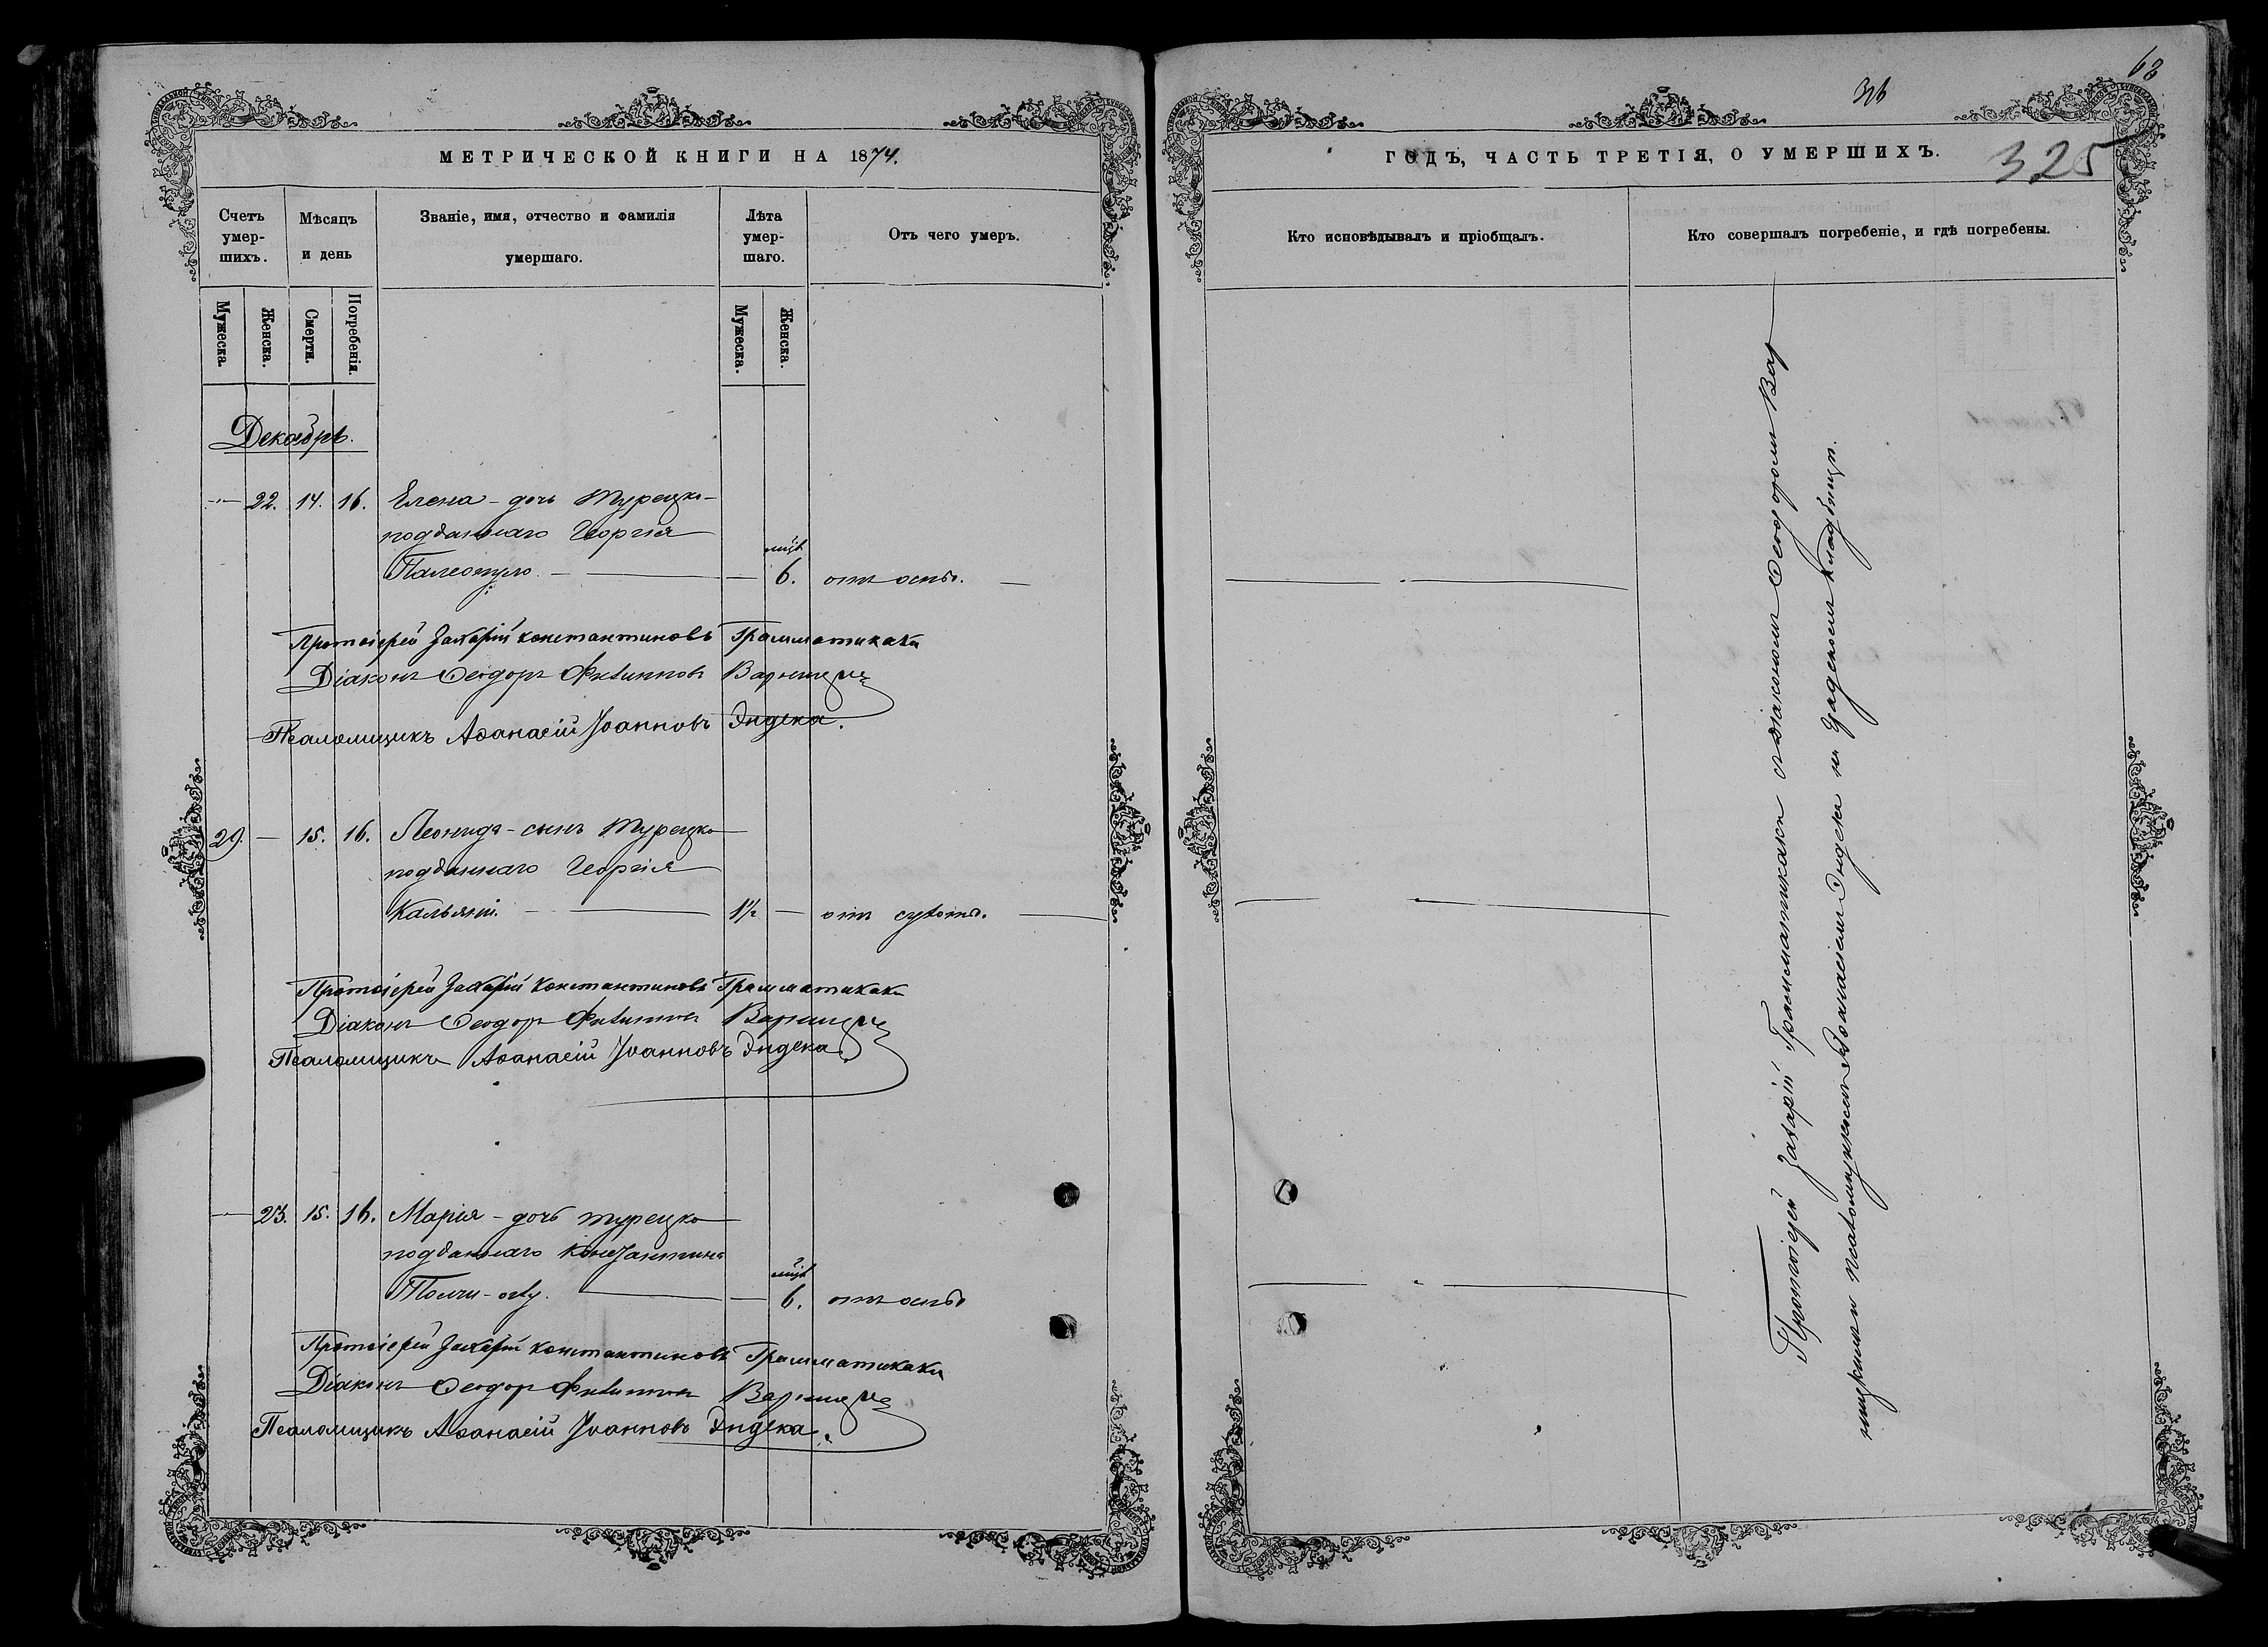 МЕТРИЧЕСКОЙ КНИГИ НА 1874.
Счетъ умер-шихъ.
Мѣсяцъ и день
Званіе, имя, отчество и фамилія умершаго.
Лѣта умер-шаго.
Отъ чего умеръ.
Мужеска.
Женска.
Смерти.
Погребенія.
Мужеска.
Женска.
Декабрь.
22. 14. 16. Елена - дочь Турецко-
подданнаго Георгія
6. отъ оспы.
Протоіерей Захарій Константиновъ Грамматикаки
Діаконъ Ѳеодоръ Филиппов
Псаломщикъ Аѳанасій Іоанновъ Эндека.
29. — 15. 16. Леонидъ - сынъ Турецко
подданнаго Георгія
1½ — отъ
Протоіерей Захарій Константиновъ Грамматикаки
Діаконъ Ѳеодоръ Филиппов
Псаломщикъ Аѳанасій Іоанновъ Эндека.
23. 15. 16. Марія - дочь турецко
подданнаго Константина
6. отъ оспы
Протоіерей Захарій Константиновъ Грамматикаки
Діаконъ Ѳеодоръ Филиппов
Псаломщикъ Аѳанасій Іоанновъ Эндека.
63
325
ГОДЪ, ЧАСТЬ ТРЕТІЯ, О УМЕРШИХЪ.
Кто исповѣдывалъ и пріобщалъ.
Кто совершалъ погребеніе, и гдѣ погребены.
Протоіерей Захарій Грамматикаки съ діакономъ Ѳеодоромъ Вар
ницкимъ и псаломщикомъ Аѳанасіемъ Эндека на градскомъ кладбищѣ.